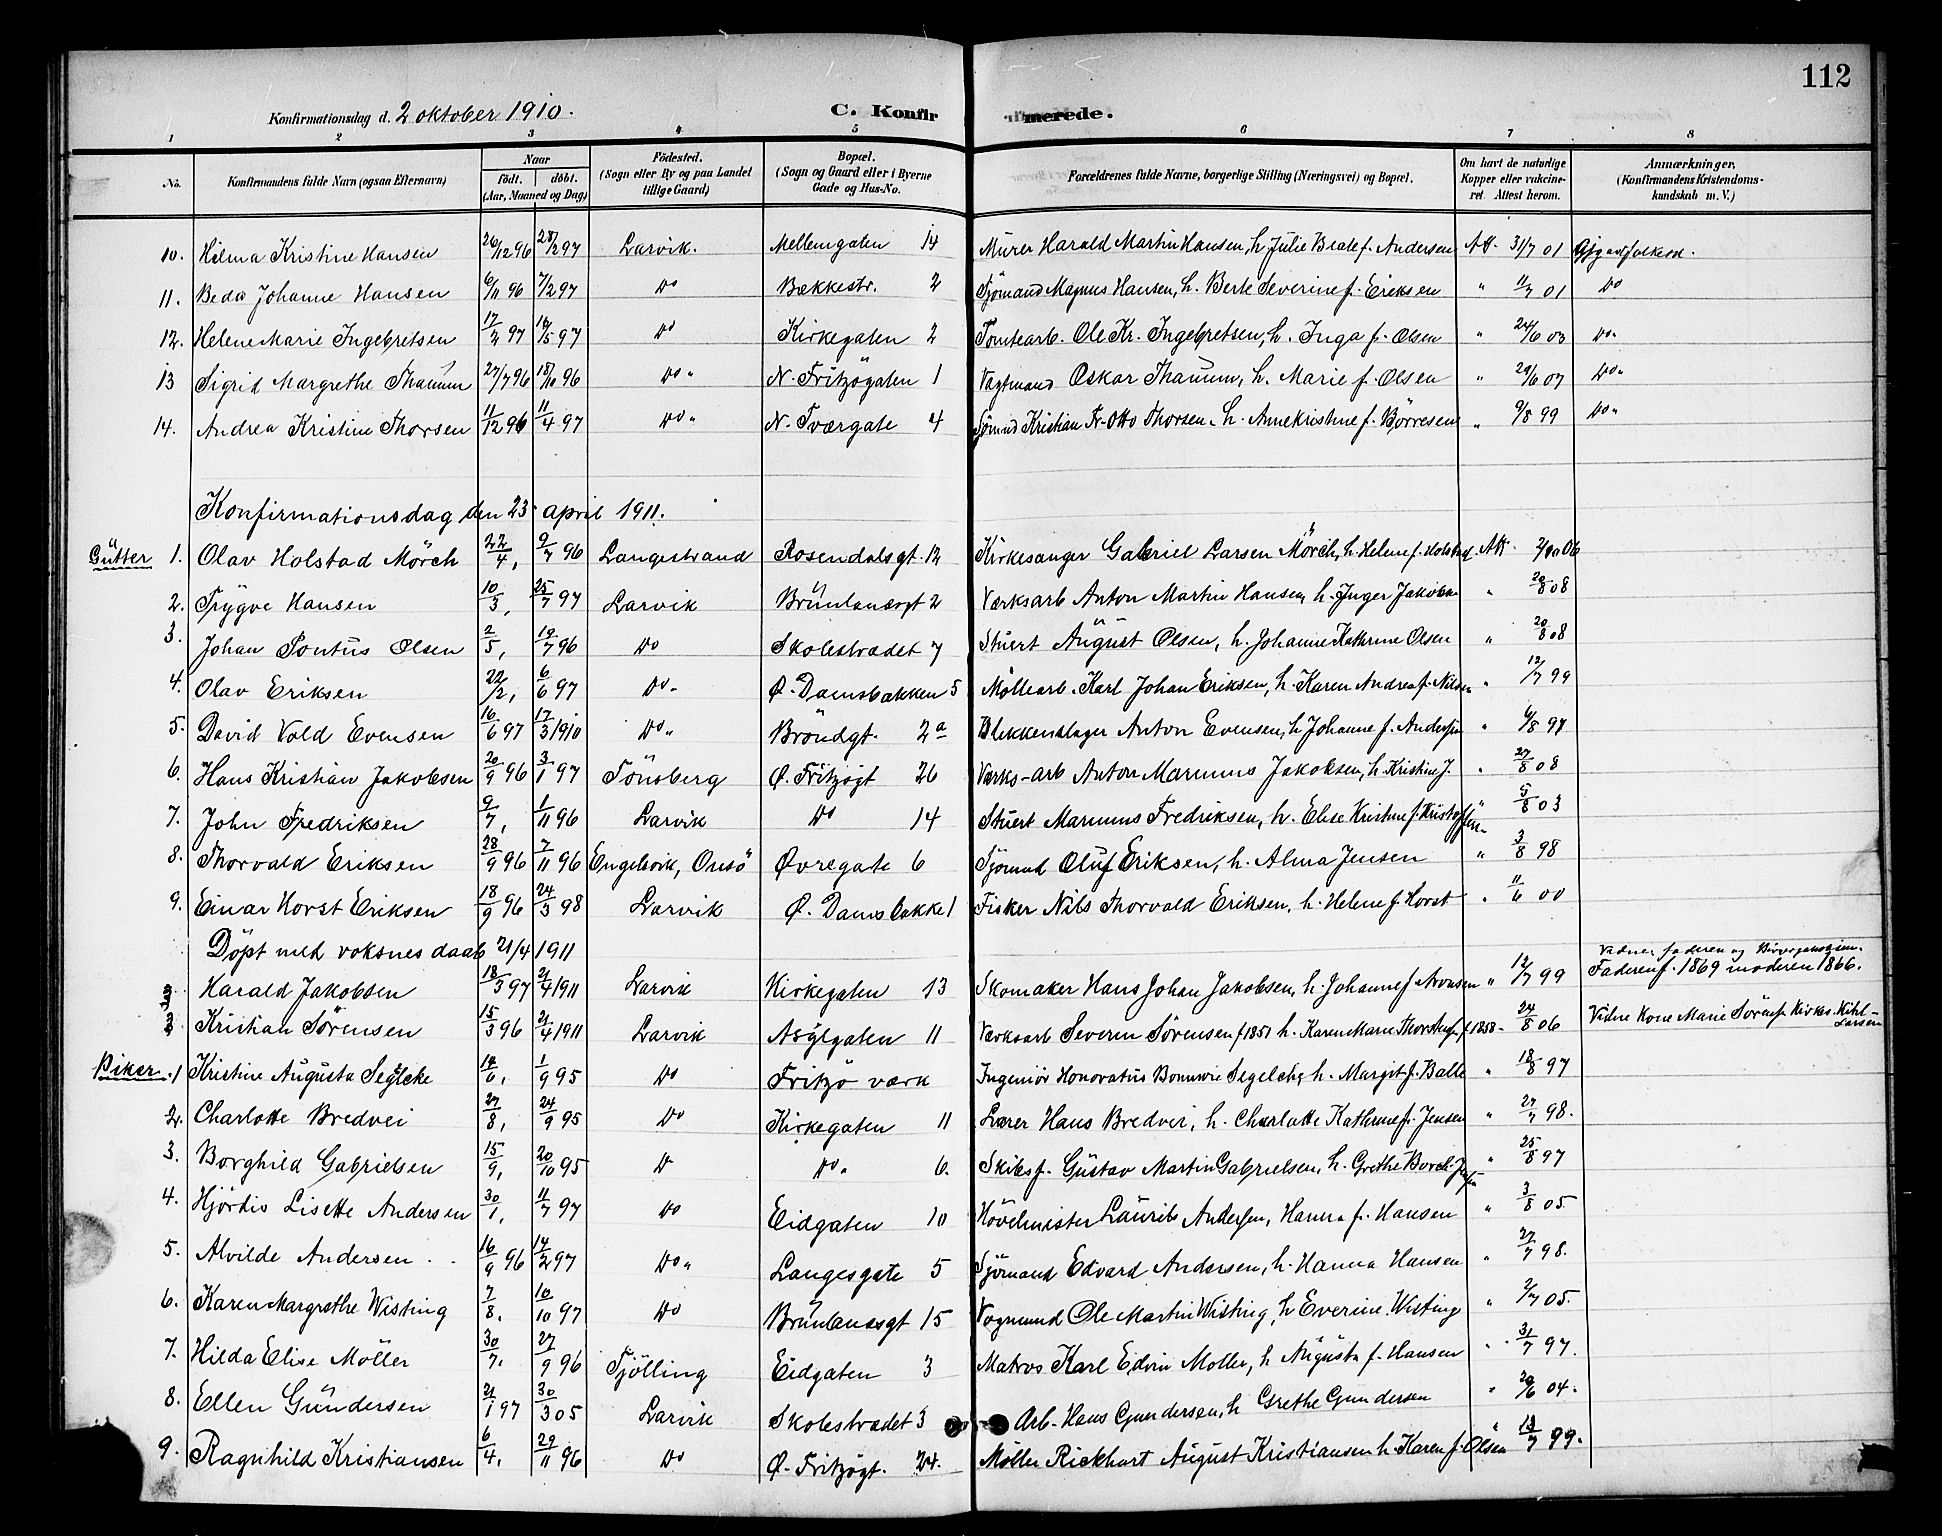 112
Konfirmationsdag d. 2 oktober 1910. C. Konfirmerede.
1 2 3 4 5 6 7 8
No. Konfirmandens fulde Navn (ogsaa Efternavn) Naar födt. döbt. (Aar, Maaned og Dag) Födested. (Sogn eller By og paa Landet tillige Gaard) Bopæl. (Sogn og Gaard eller i Byerne Gade og Hus-No. Forældrenes fulde Navne, borgerlige Stilling (Næringsvei) og Bopæl. Om havt de naturlige Kopper eller vakcineret. Attest herom. Anmærkninger. (Konfirmandens Kristendomskundskab m. V.)
10. Hilma Kristine Hansen 26/12 96 28/2 97 Larvik. Mellemgaten 14 Murer Harald Martin Hansen, h Julie Beate f. Andersen Att. 31/7 01
11. Beda Johanne Hansen 6/11 96 7/2 97 Do Bækkestr. 2 Sjömand Magnus Hansen, h. Berte Severine f. Eriksen " 11/7 01 Do
12. Helene Marie Ingebretsen 17/2 97 17/5 97 Do Kirkegaten 2 Tomtearb. Ole Kr. Ingebretsen, h. Inga f. Olsen " 24/6 03 Do.
13 Sigrid Margrethe Thaüm 27/7 96 18/10 96 Do " N. Fritzögaten 1 Vagtmand Oskar Thaüm, h. Marie f. Olsen " 29/6 07 Do "
14. Andrea Kristine Thorsen 11/12 96 11/4 97 Do " N. Tværgate 4 Sjömnd Kristian Fr. Otto Thorsen, h. Anne Kristine f. Börresen " 9/8 99 Do "
Konfirmationsdag den 23. april 1911.
Gütter 1. Olav Holstad Mörch 22/4, 9/7 96 Langestrand Rosendalsgt. 12 Kirkesanger Gabriel Larsen Mörch, h. Helene f. Holstad. Att. 2/10 06
2. Trygve Hansen 10/3, 25/7 97 Larvik Brünlanesgt 2 Værksarb Anton Martin Hansen, h. Inger Jakobsen " 20/8 08
3. Johan Pontüs Olsen 2/5, 19/7 96 Do Skolestrædet 7 Stuert Aügüst Olsen, h. Johanne Kathrine Olsen " 20/8 08
4. Olav Eriksen 22/2, 6/6 97 Do " Ø. Damsbakken 5 Möllearb. Karl Johan Eriksen, h. Karen Andrea f. Nilsen " 12/7 99
5. David Vold Evensen 16/6 97 17/3 1910 Do " Bröndgt. 2a Blikkenslager Anton Evensen, h Johanne f. Andersen " 6/8 97
6. Hans Kristian Jakobsen 20/9 96 3/1 97 Tönsberg Ø. Fritzögt 26 Værks-arb Anton Marinus Jakobsen, h. Kristine J. " 27/8 08
7. John Fredriksen 9/7, 1/11 96 Larvik Do 14 Stuert Marinus Fredriksen, h. Elise Kristine f. Kristoffersen " 5/8 03
8. Thorvald Eriksen 28/9 96 7/11 96 Engelsvik, Onsö Øvregate 6 Sjömnd Oluf Eriksen, h. Alma Jensen " 3/8 98
9. Einar Horst Eriksen 18/9 96 24/3 98 Larvik Ø. Damsbakke 1 Fisker Nils Thorvald Eriksen, h. Helene f. Horst " 11/6 00
Döpt med voksnes daab 21/4 1911
Harald Jakobsen 18/3 97 21/4 1911 Larvik Kirkegaten 13 Skomaker Hans Johan Jakobsen, h. Johanne f. Aronsen " 12/7 99 Faderen f. 1869 moderen 1866.
Kristian Sörensen 15/3 96 21/4 1911 Larvik Asylgaten 11 Værksarb Severin Sörensen f 1851 h. Karen Marie f 1858. " 24/8 06 Vidne Kone Marie Larsen
Piker. 1 Kristine Aügüsta Segelcke 14/6, 1/9 95 Do Fritzö værk Ingeniör Honoratus Bonnevie Segelcke h. Margit f. Balle " 18/8 97
2. Charlotte Bredvei 27/8, 24/9 95 Do Kirkegaten 11 Lærer Hans Bredvei, h. Charlotte Kathrine f. Jensen " 27/7 98.
3. Borghild Gabrielsen 15/9, 20/10 95 D Do " 6. Skibsf. Güstav Martin Gabrielsen, h. Grethe Borch " 25/8 97
4. Hjördis Lisette Andersen 30/1, 11/7 97 Do Eidgaten 10 Hövelmester Laürits Andersen, Hanna f. Hansen " 3/8 05.
5. Alvilde Andersen 16/9 96 14/2 97 Do " Langesgate 5 Sjömand Edvard Andersen, h. Hanna Hansen " 27/7 98.
6. Karen Margrethe Wisting 7/8. 10/10 97 Do Brünlanesgt 15 Vognmand Ole Martin Wisting, h Everine Wisting " 2/7 05.
7. Hilda Elise Möller 30/7, 27/9 96 Tjölling Eidgaten 3 Matros Karl Edvin Moller, h Aügüsta f. Hansen " 31/7 97.
8. Ellen Gündersen 21/1 97 30/3 05 Larvik Skolestrædet 3 Arb. Hans Gundersen, h Grethe Gundersen " 20/6 04.
9. Ragnhild Kristiansen 6/4. 29/11 96 Do Ø. Fritzögt. 24. Möller Rickhart August Kristiansen h. Karen f. Olsen " 13/7 99.